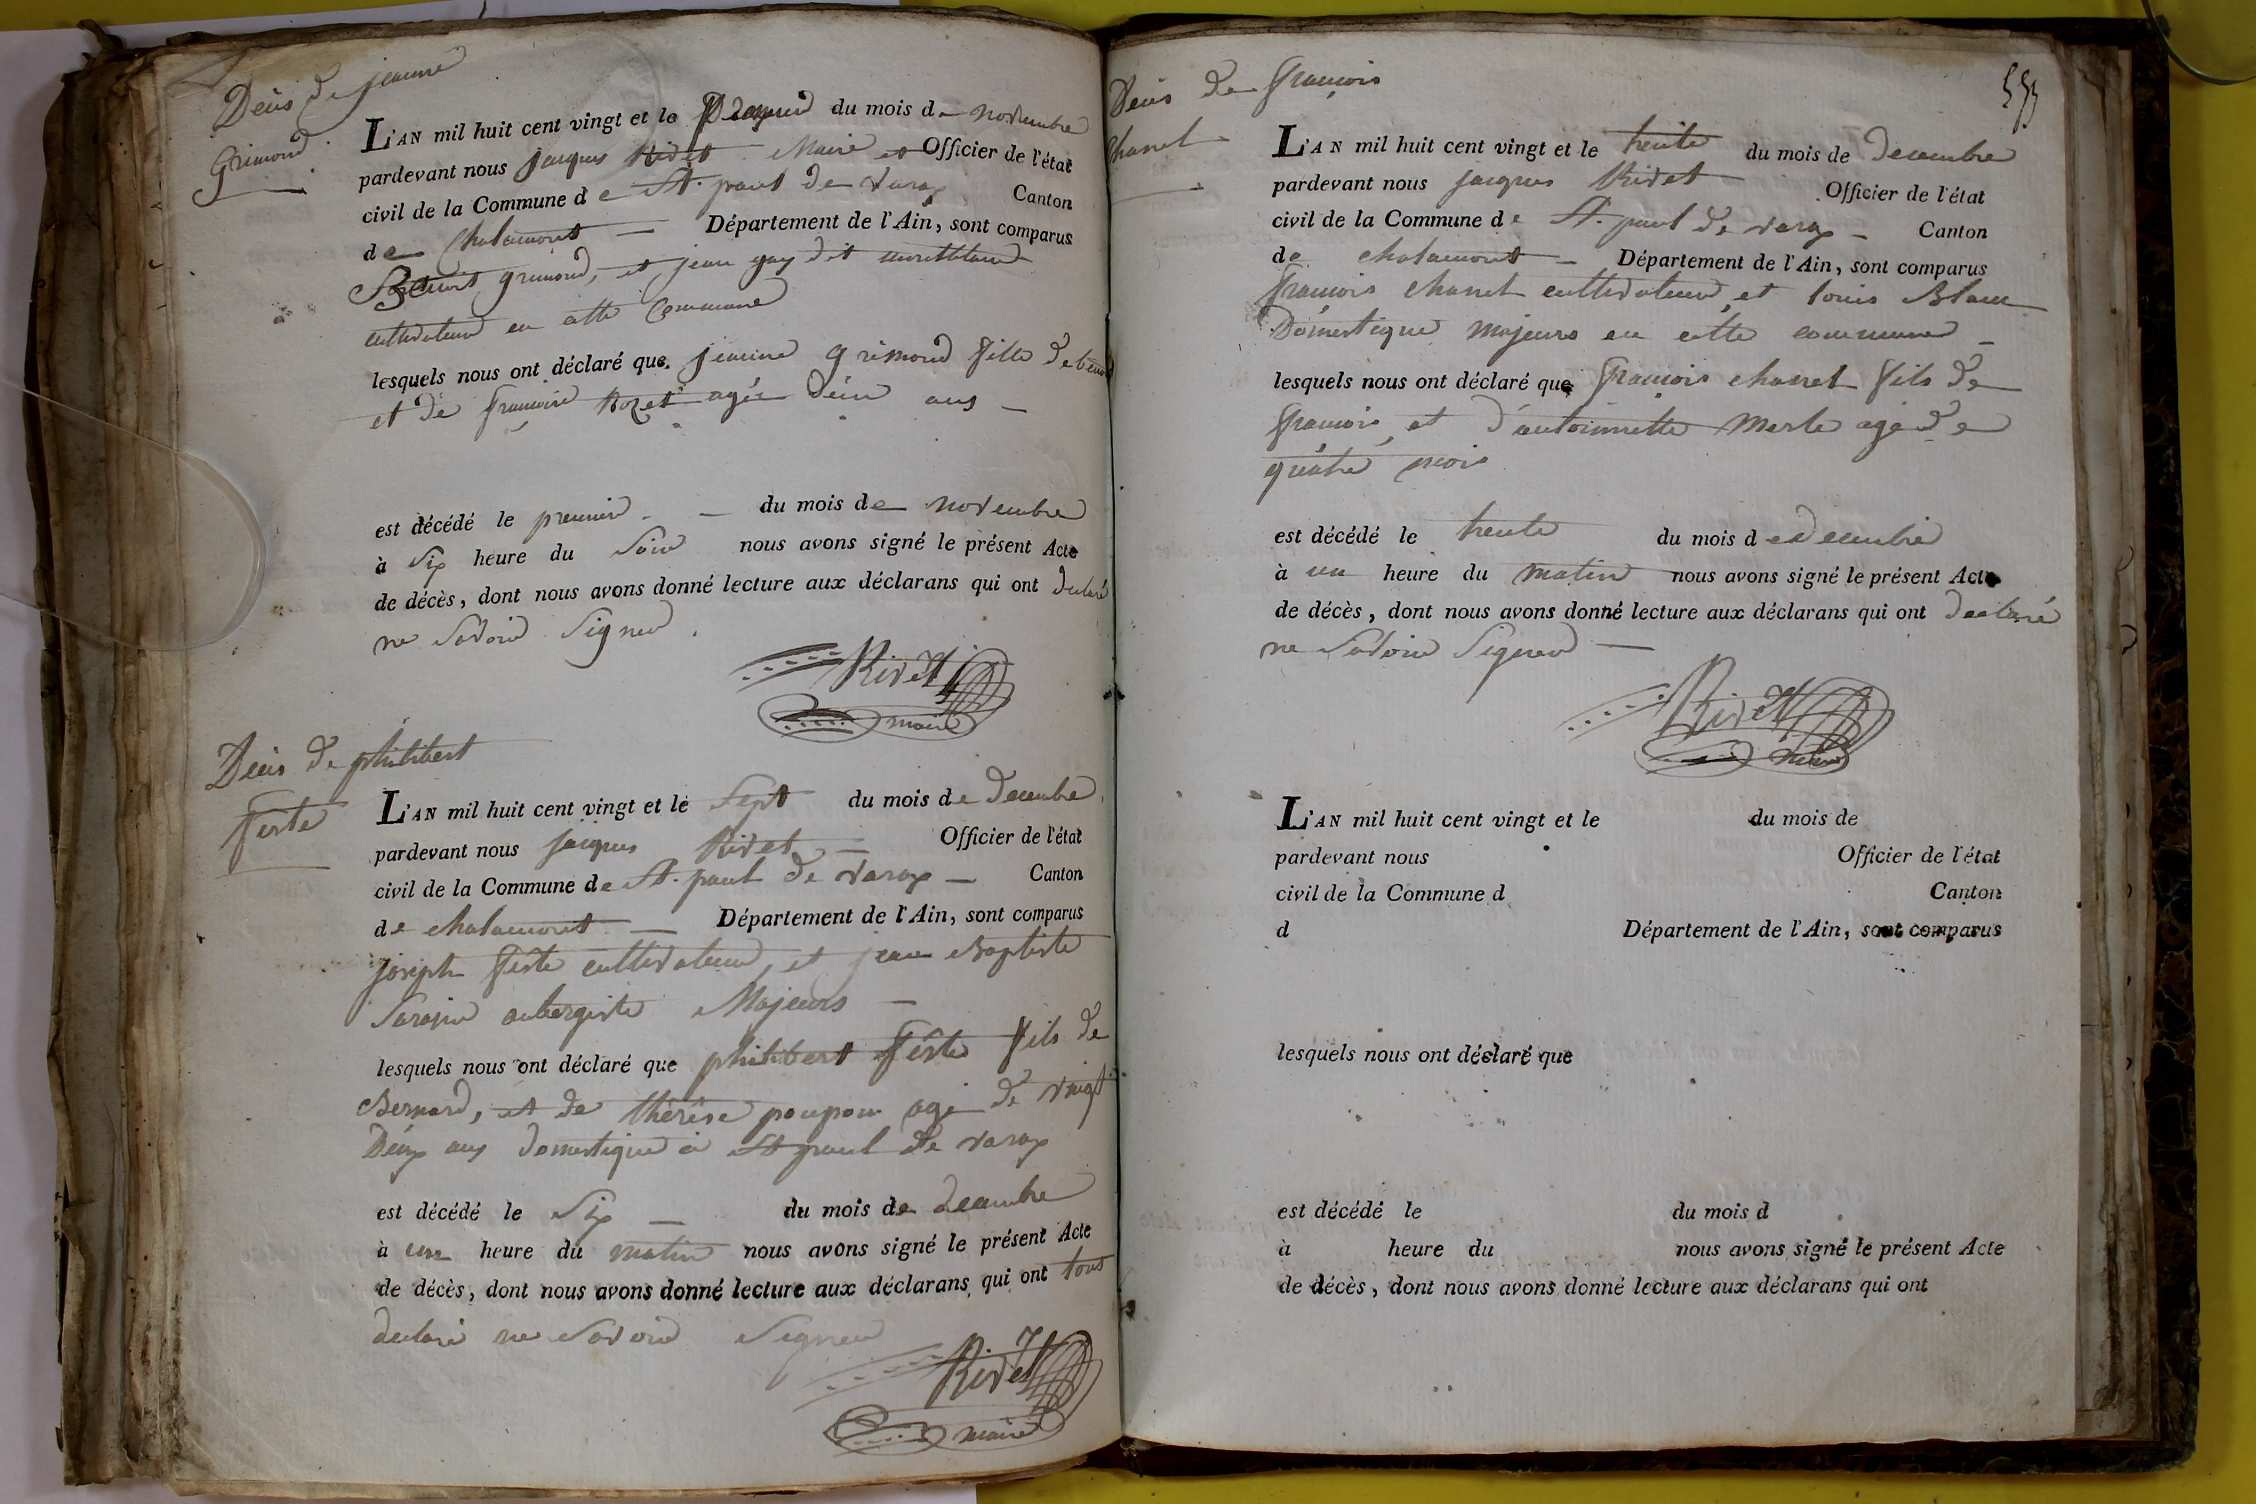 Décès de jeanne
Grimond
L'AN mil huit cent vingt et le du mois de novembre
pardevant nous jacques Rivet Maire et Officier de l'état
civil de la Commune de St. paul de varax Canton
de Chalamont — Département de l'Ain, sont comparus
Benoit grimond, et jean guy dit montblanc
cultivateurs en cette Commune
lesquels nous ont déclaré que jeanne grimond fille de benoit
et de françoise Rozet agée d'éun ans —
est décédé le premier — du mois de novembre
à Six heure du Soir nous avons signé le présent Acte
de décès, dont nous avons donné lecture aux déclarans qui ont declaré
ne Savoir Signer.
Rivet
maire
Décès de philibert
ferté
L'AN mil huit cent vingt et le Sept du mois de Decembre
pardevant nous jacques Rivet — Officier de l'état
civil de la Commune de St. paul de varax — Canton
de chalamont — Département de l'Ain, sont comparus
joseph ferté cultivateur, et jean Baptiste
Sarazin aubergiste Majeurs —
lesquels nous ont déclaré que philibert ferté fils de
Bernard, et de thérèse poupon agé de vingt
Déux ans domestique à St paul de varax
est décédé le Six — du mois de decembre
à un heure du matin nous avons signé le présent Acte
de décès, dont nous avons donné lecture aux déclarans qui ont tous
declaré ne Savoir Signer
Rivet
maire
Décès de françois
chanel
L'AN mil huit cent vingt et le trente du mois de Decembre
pardevant nous jacques Rivet Officier de l'état
civil de la Commune de St. paul de varax — Canton
de chalamont — Département de l'Ain, sont comparus
françois chanel cultivateur et louis Blanc
Domestique majeurs en cette commune —
lesquels nous ont déclaré que françois chanel fils de
françois et d'antoinette Merle agé de
quatre mois
est décédé le trente du mois de decembre
à un heure du matin nous avons signé le présent Acte
de décès, dont nous avons donné lecture aux déclarans qui ont declaré
ne Savoir Signer —
Rivet
maire
L'AN mil huit cent vingt et le du mois de
pardevant nous Officier de l'état
civil de la Commune d Canton
d Département de l'Ain, sont comparus
lesquels nous ont déclaré que
est décédé le du mois d
à heure du nous avons signé le présent Acte
de décès, dont nous avons donné lecture aux déclarans qui ont